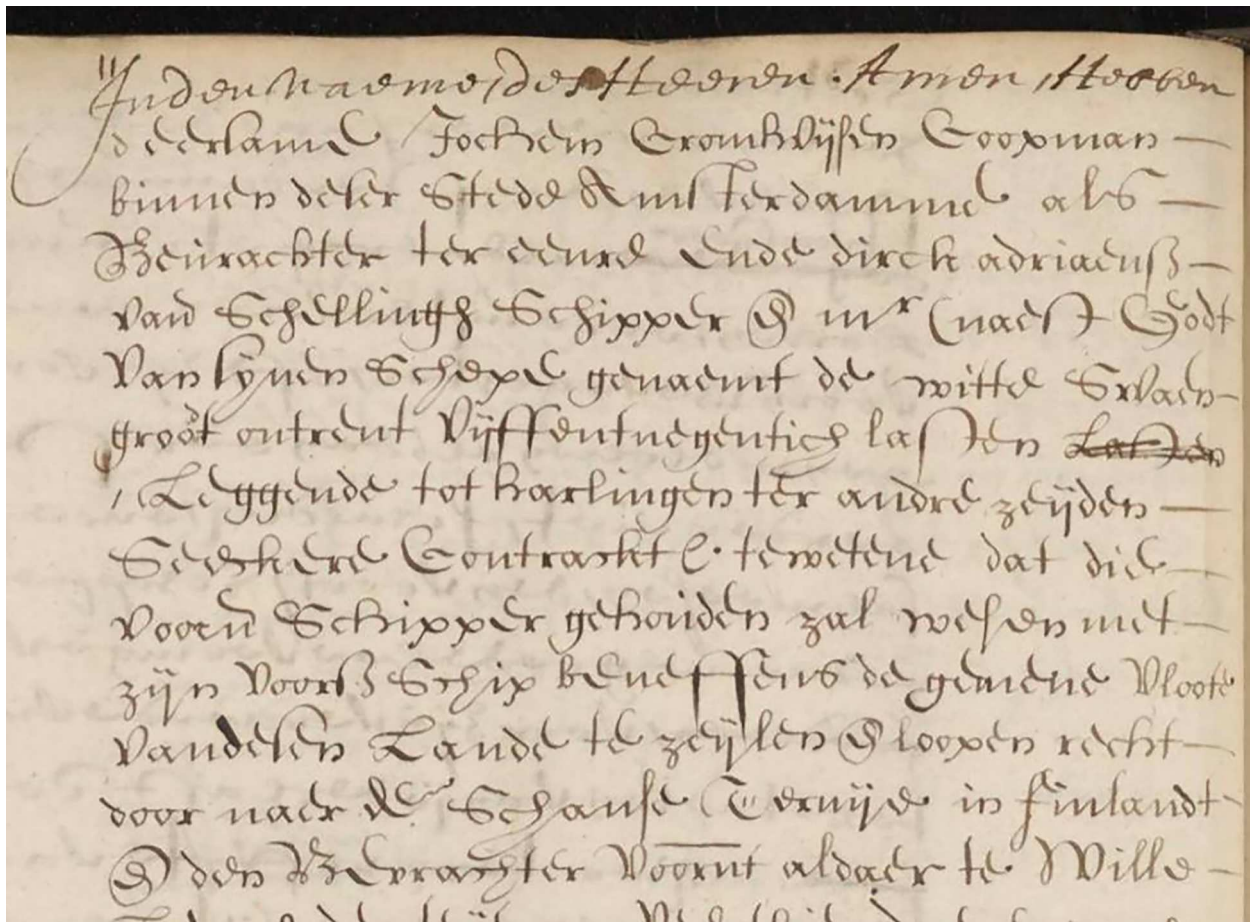 In den naeme des Heeren. Amen, Hebben
d'eersame Jochem Cromhuijsen Coopman
binnen deser Stede Amsterdamme als
Bevrachter ter eenre ende dirck adriaensz
van Schellingh Schipper en mr (naest Godt
van sijnen Schepe genaemt de witte Swaen
groot ontrent vijffentnegentich lasten Lasten
, Leggende tot harlingen ter andre zeijden
Seeckere Contrackt te wetene dat die
voorn Schipper gehouden zal wesen met
zijn voorsz Schip beneffens de gemene vloote
van desen Lande te zeijlen en loopen recht
door naer de Schanse in finlandt
en den Bevrachter voornt aldaer te Wille